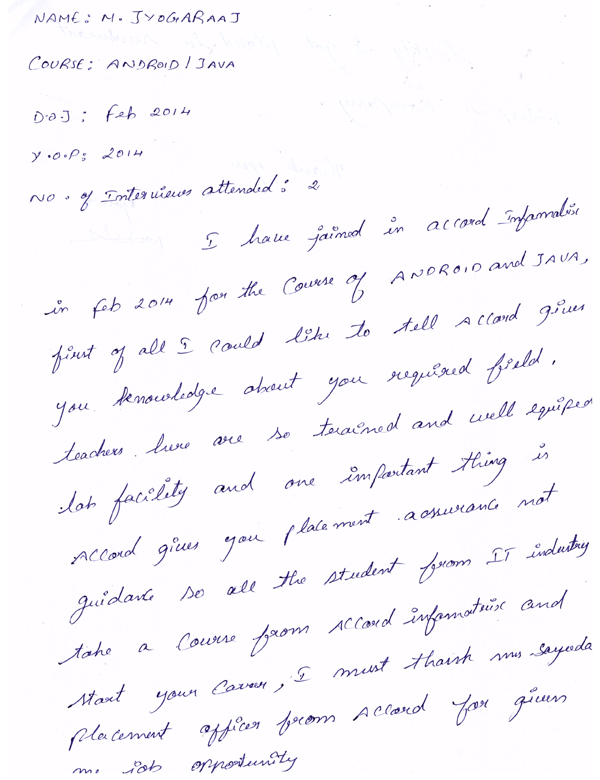 NAME: M. JYOGARAAJ
COURSE: ANDROID / JAVA
D.O.J : Feb 2014
Y.O.P: 2014
NO. of Interviews attended: 2
I have joined in accord Infamatrix
in feb 2014 for the Course of ANDROID and JAVA,
first of all I could like to tell Accord gives
you knowledge about you required field.
teachers here are so trained and well equiped
lab facility and one important thing is
Accord gives you placement assurance not
guidance so all the student from IT industry
take a Course from Accord infamatrix and
start your Career, I must thank ms Sayeeda
placement officer from Accord for given
me job opportunity